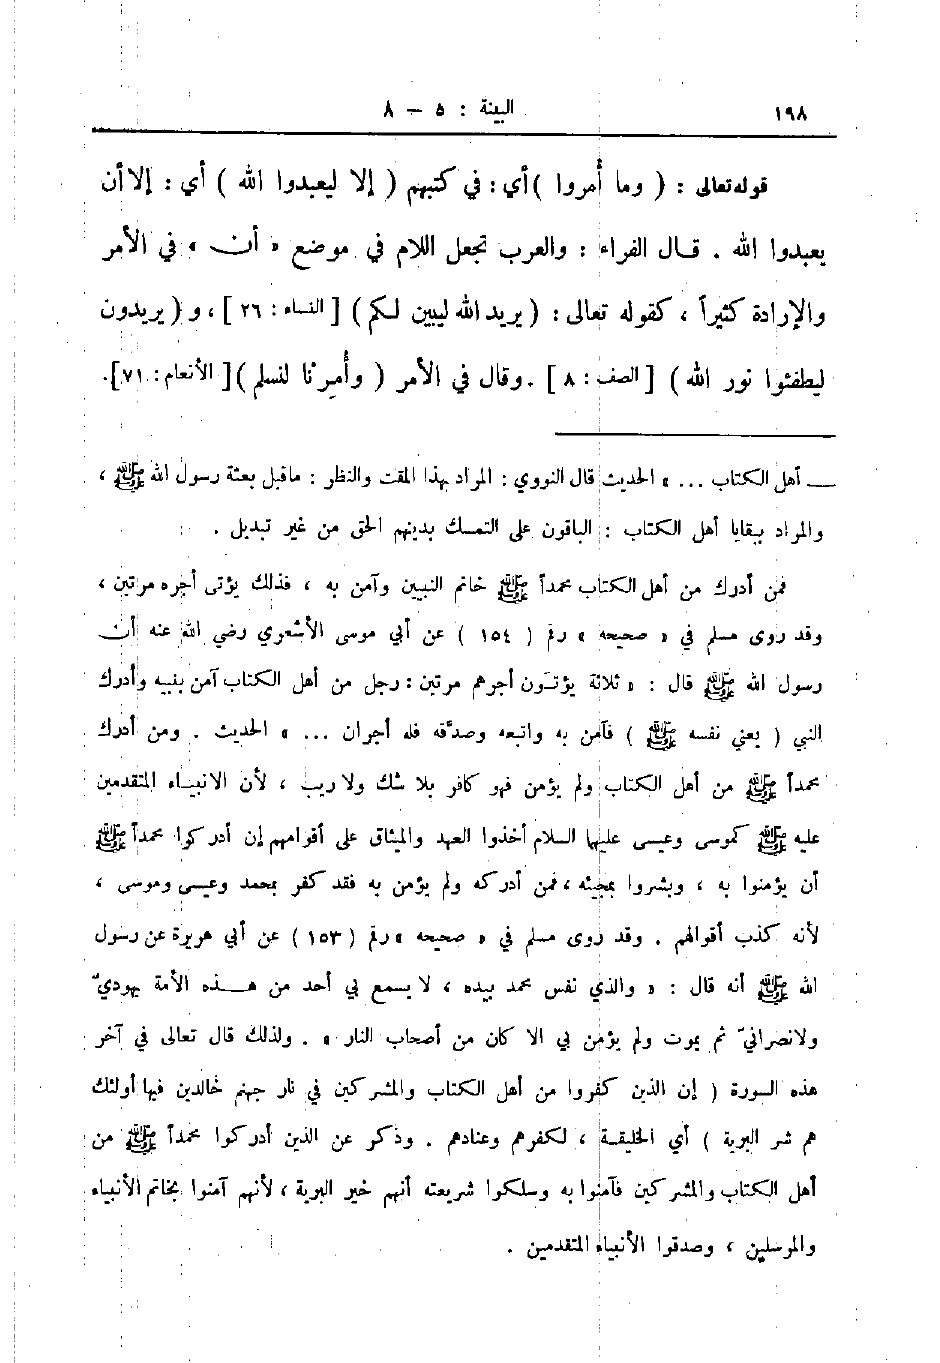 ١٩٨
البينة : ٥ — ٨
قوله تعالى : ( وما أُمروا ) أي : في كتبهم ( إلا ليعبدوا الله ) أي : إلا أن
يعبدوا الله . قـال الفراء : والعرب تجعل اللام في موضع « أن » في الأمر
والإرادة كثيراً ، كقوله تعالى : ( يريد الله ليبين لكم ) [ النساء : ٢٦ ] ، و ( يريدون
ليطفئوا نور الله ) [ الصف : ٨ ] . وقال في الأمر ( وأُمِرْنا لنسلم ) [ الأنعام : ٧١ ] .
— أهل الكتاب ... » الحديث قال النووي : المراد بهذا المقت والنظر : ماقبل بعثة رسول الله ﷺ ،
والمراد ببقايا أهل الكتاب : الباقون على التمسك بدينهم الحق من غير تبديل .
فمن أدرك من أهل الكتاب محمداً ﷺ خاتم النبيين وآمن به ، فذلك يؤتى أجره مرتين ،
وقد روى مسلم في « صحيحه » رقم ( ١٥٤ ) عن أبي موسى الأشعري رضي الله عنه أن
رسول الله ﷺ قال : « ثلاثة يؤتَون أجرهم مرتين : رجل من أهل الكتاب آمن بنبيه وأدرك
النبي ( يعني نفسه ﷺ ) فآمن به واتبعه وصدَّقه فله أجران ... » الحديث . ومن أدرك
محمداً ﷺ من أهل الكتاب ولم يؤمن فهو كافر بلا شك ولا ريب ، لأن الانبياء المتقدمين
عليه ﷺ كموسى وعيسى عليها السلام أخذوا العهد والميثاق على أقوامهم إن أدركوا محمداً ﷺ
أن يؤمنوا به ، وبشروا بمجيئه ، فمن أدركه ولم يؤمن به فقد كفر بمحمد وعيسى وموسى ،
لأنه كذب أقوالهم . وقد روى مسلم في « صحيحه » رقم ( ١٥٣ ) عن أبي هريرة عن رسول
الله ﷺ أنه قال : « والذي نفس محمد بيده ، لا يسمع بي أحد من هـذه الأمة يهوديّ
ولانصرانيّ ثم يموت ولم يؤمن بي الا كان من أصحاب النار » . ولذلك قال تعالى في آخر
هذه السورة ( إن الذين كفروا من أهل الكتاب والمشركين في نار جهنم خالدين فيها أولئك
هم شر البرية ) أي الخليقة ، لكفرهم وعنادهم . وذكر عن الذين أدركوا محمداً ﷺ من
أهل الكتاب والمشركين فآمنوا به وسلكوا شريعته أنهم خير البرية ، لأنهم آمنوا بخاتم الأنبياء
والمرسلين ، وصدقوا الأنبياء المتقدمين .